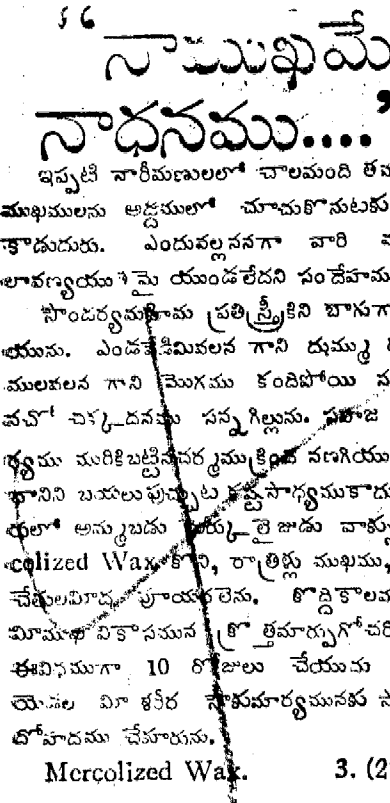 56
నాముఖమే
నాధనము....'
ఇప్పటి నారీమణులలో చాలమంది తమ
ముఖములను అద్దములో చూచుకొనుటకు
కాడుదురు. ఎందువల్లననగా వారి
లావణ్యయు మై యుండలేదని సందేహము
సౌందర్యమహిమ ప్రతిస్త్రీకిని బాగుగా
యును. ఎండ గాని దుమ్ము
ములవలన గాని మొగము కందిపోయి
వచో చిక్కదనము సన్నగిల్లును. సహజ
ర్యము మురికిబట్టినచర్మముక్రింద నణగియు
దానిని బయలుపుచ్చుట కష్టసాధ్యముకాదు
లలో అమ్ముబడు మెర్కులైజుడు వాక్సు
colized Wax కొని, రాత్రిళ్లు ముఖము,
చేతులమీద పూయవలెను. కొద్దికాలమ
మీముఖ వికాసమున క్రొత్తమార్పుగోచరి
ఈవిధముగా 10 రోజులు చేయును
యెడల మీ శరీర సౌకుమార్యమునకు
దోహదము చేకూరును.
Mercolized Wax. 3. (2